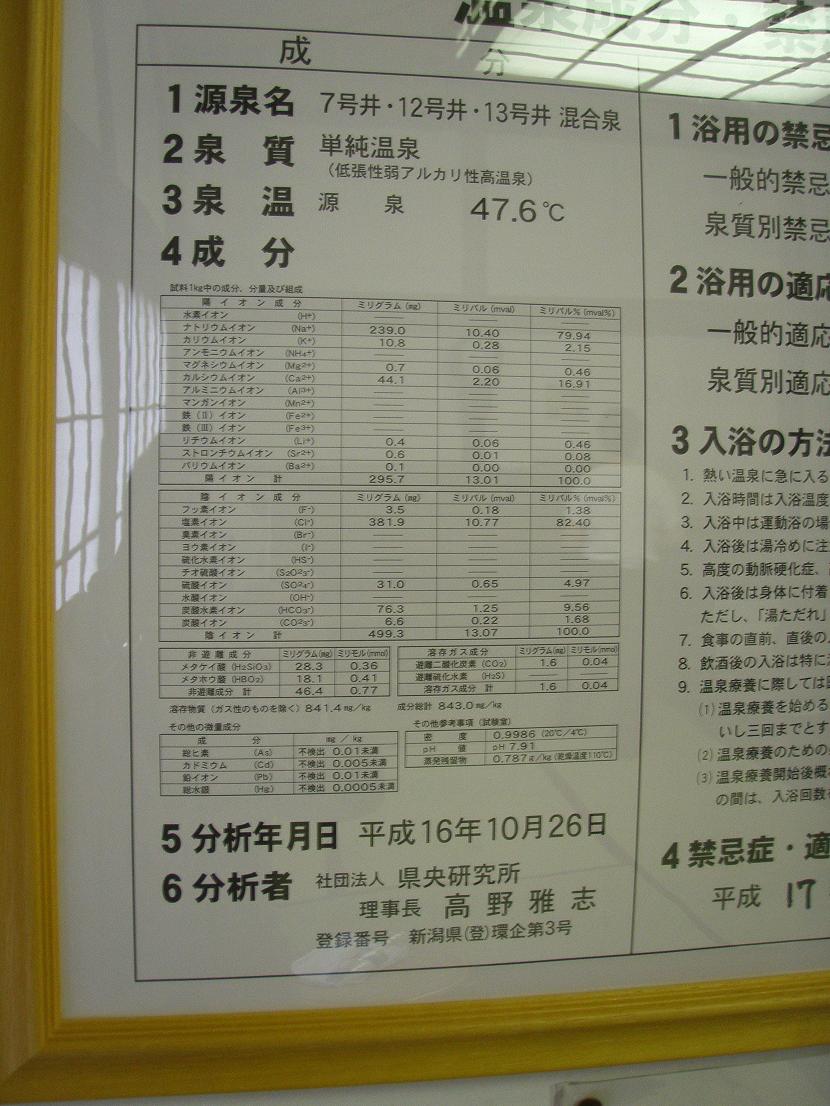 温泉成分・禁
成 分
1 源泉名 7号井・12号井・13号井 混合泉
2 泉 質 単純温泉
（低張性弱アルカリ性高温泉）
3 泉 温 源 泉 47.6℃
4 成 分
試料1kg中の成分、分量及び組成
陽イオン成分 ミリグラム (mg) ミリバル (mval) ミリバル% (mval%)
水素イオン (H+) — — —
ナトリウムイオン (Na+) 239.0 10.40 79.94
カリウムイオン (K+) 10.8 0.28 2.15
アンモニウムイオン (NH4+) — — —
マグネシウムイオン (Mg2+) 0.7 0.06 0.46
カルシウムイオン (Ca2+) 44.1 2.20 16.91
アルミニウムイオン (Al3+) — — —
マンガンイオン (Mn2+) — — —
鉄(Ⅱ)イオン (Fe2+) — — —
鉄(Ⅲ)イオン (Fe3+) — — —
リチウムイオン (Li+) 0.4 0.06 0.46
ストロンチウムイオン (Sr2+) 0.6 0.01 0.08
バリウムイオン (Ba2+) 0.1 0.00 0.00
陽イオン 計 295.7 13.01 100.0
陰イオン成分 ミリグラム (mg) ミリバル (mval) ミリバル% (mval%)
フッ素イオン (F-) 3.5 0.18 1.38
塩素イオン (Cl-) 381.9 10.77 82.40
臭素イオン (Br-) — — —
ヨウ素イオン (I-) — — —
硫化水素イオン (HS-) — — —
チオ硫酸イオン (S2O32-) — — —
硫酸イオン (SO42-) 31.0 0.65 4.97
水酸イオン (OH-) — — —
炭酸水素イオン (HCO3-) 76.3 1.25 9.56
炭酸イオン (CO32-) 6.6 0.22 1.68
陰イオン 計 499.3 13.07 100.0
非遊離成分 ミリグラム(mg) ミリモル(mmol)
メタケイ酸 (H2SiO3) 28.3 0.36
メタホウ酸 (HBO2) 18.1 0.41
非遊離成分 計 46.4 0.77
溶存ガス成分 ミリグラム(mg) ミリモル(mmol)
遊離二酸化炭素 (CO2) 1.6 0.04
遊離硫化水素 (H2S) — —
溶存ガス成分 計 1.6 0.04
溶存物質（ガス性のものを除く）841.4mg/kg 成分総計 843.0mg/kg
その他の微量成分
成 分 mg / kg
総ヒ素 (As) 不検出 0.01未満
カドミウム (Cd) 不検出 0.005未満
鉛イオン (Pb) 不検出 0.01未満
総水銀 (Hg) 不検出 0.0005未満
その他参考事項（試験室）
密 度 0.9986 (20℃/4℃)
pH 値 pH 7.91
蒸発残留物 0.787g/kg (乾燥温度110℃)
5 分析年月日 平成16年10月26日
6 分析者 社団法人 県央研究所
理事長 高野雅志
登録番号 新潟県(登)環企第3号
1 浴用の禁忌
一般的禁忌
泉質別禁忌
2 浴用の適応
一般的適応
泉質別適応
3 入浴の方法
1. 熱い温泉に急に入る
2. 入浴時間は入浴温度
3. 入浴中は運動浴の場
4. 入浴後は湯冷めに注
5. 高度の動脈硬化症、
6. 入浴後は身体に付着
ただし、「湯ただれ」
7. 食事の直前、直後の
8. 飲酒後の入浴は特に
9. 温泉療養に際しては
(1) 温泉療養を始める
いし三回までとす
(2) 温泉療養のための
(3) 温泉療養開始後概
の間は、入浴回数
4 禁忌症・適
平成 17